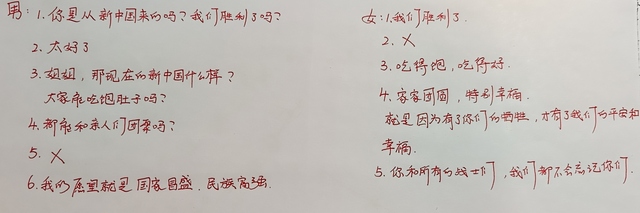 男：1. 你是从新中国来的吗？我们胜利了吗？
2. 太好了
3. 姐姐，那现在的新中国什么样？
大家能吃饱肚子吗？
4. 都能和亲人们团聚吗？
5. X
6. 我的愿望就是国家昌盛，民族富强.
女：1. 我们胜利了.
2. X
3. 吃得饱，吃得好.
4. 家家团圆，特别幸福.
就是因为有了你们的牺牲，才有了我们的平安和
幸福.
5. 你和所有的战士们，我们都不会忘记你们.